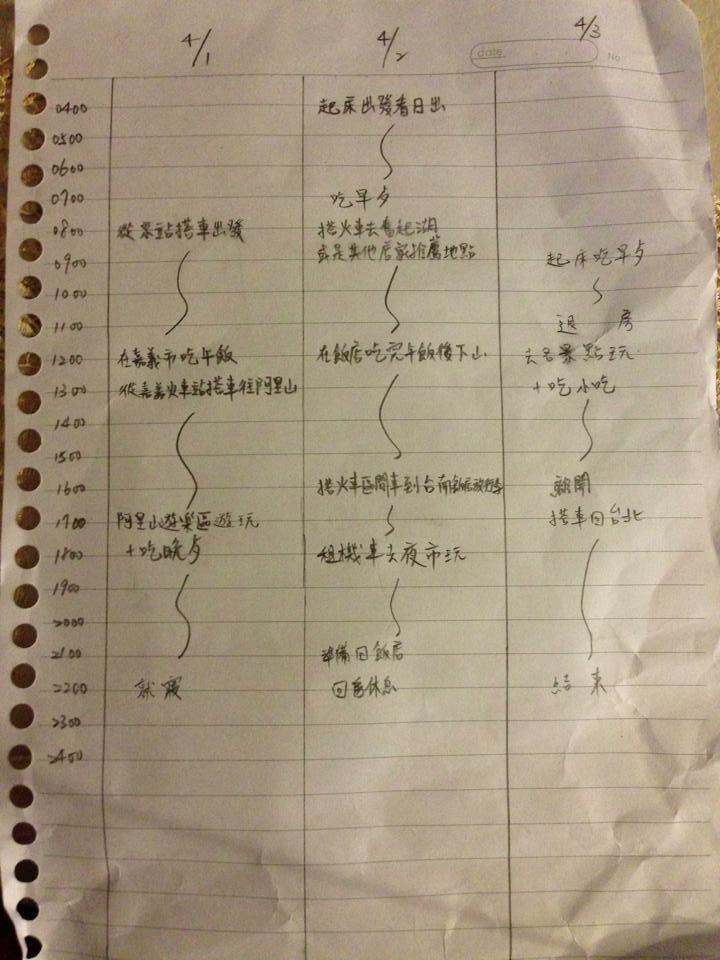 4/1 4/2 4/3
date No
0400 起床出發看日出
0500
0600
0700 吃早夕
0800 從 站搭車出發 搭火車去看起湖
或是其他店家推薦地點
0900 起床吃早夕
1000
1100 退房
1200 在嘉義市吃午飯 在飯店吃完午飯後下山 去各景點玩
1300 從嘉義火車站搭車往阿里山 +吃小吃
1400
1500
1600 搭火車區間車到台南飯店放行李 離開
1700 阿里山遊樂區遊玩 搭車回台北
1800 +吃晚夕 租機車去夜市玩
1900
2000
2100 準備回飯店
2200 就寢 回 休息 結束
2300
2400